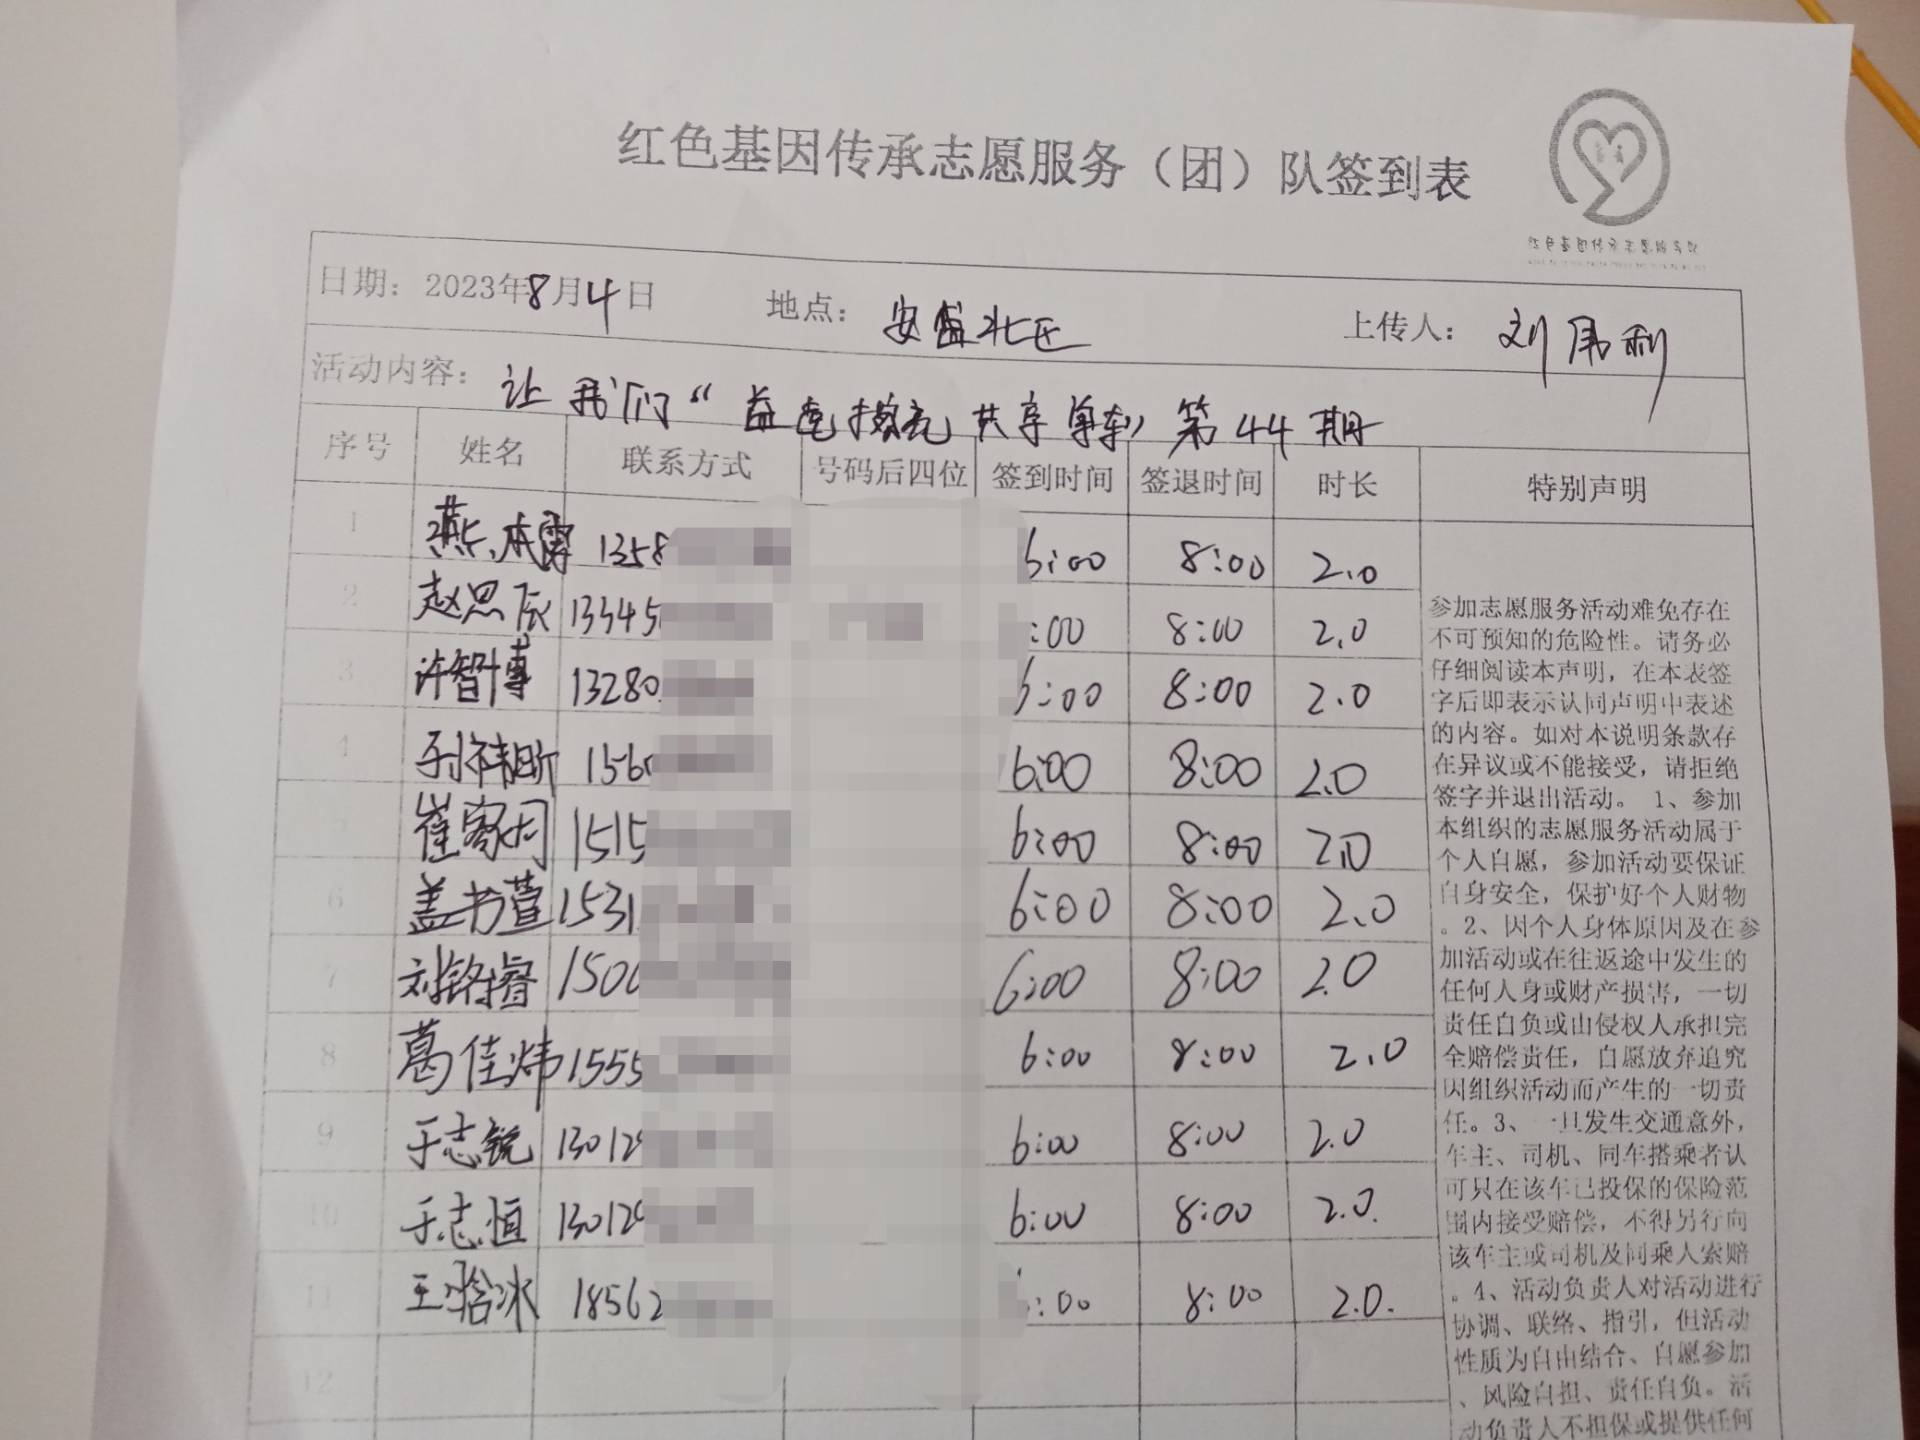 红色基因传承志愿服务（团）队签到表
日期：2023年8月4日 地点：安盛北区 上传人：刘伟利
活动内容：让我们“益起擦亮共享单车”第44期
序号 姓名 联系方式 号码后四位 签到时间 签退时间 时长 特别声明
1 燕本霄 1358 6:00 8:00 2.0
2 赵思辰 13345 :00 8:00 2.0
3 许智博 13280 6:00 8:00 2.0
4 于祎昕 1560 6:00 8:00 2.0
5 崔家同 1515 6:00 8:00 2.0
6 盖书萱 1531 6:00 8:00 2.0
7 刘铭睿 1500 6:00 8:00 2.0
8 葛佳炜 1555 6:00 8:00 2.0
9 于志锐 13012 6:00 8:00 2.0
10 于志恒 13012 6:00 8:00 2.0.
11 王晗冰 18562 6:00 8:00 2.0.
12
参加志愿服务活动难免存在
不可预知的危险性。请务必
仔细阅读本声明，在本表签
字后即表示认同声明中表述
的内容。如对本说明条款存
在异议或不能接受，请拒绝
签字并退出活动。 1、参加
本组织的志愿服务活动属于
个人自愿，参加活动要保证
自身安全，保护好个人财物
。2、因个人身体原因及在参
加活动或在往返途中发生的
任何人身或财产损害，一切
责任自负或由侵权人承担完
全赔偿责任，自愿放弃追究
因组织活动而产生的一切责
任。3、一旦发生交通意外，
车主、司机、同车搭乘者认
可只在该车已投保的保险范
围内接受赔偿，不得另行向
该车主或司机及同乘人索赔
。4、活动负责人对活动进行
协调、联络、指引，但活动
性质为自由结合、自愿参加
、风险自担、责任自负。活
动负责人不担保或提供任何